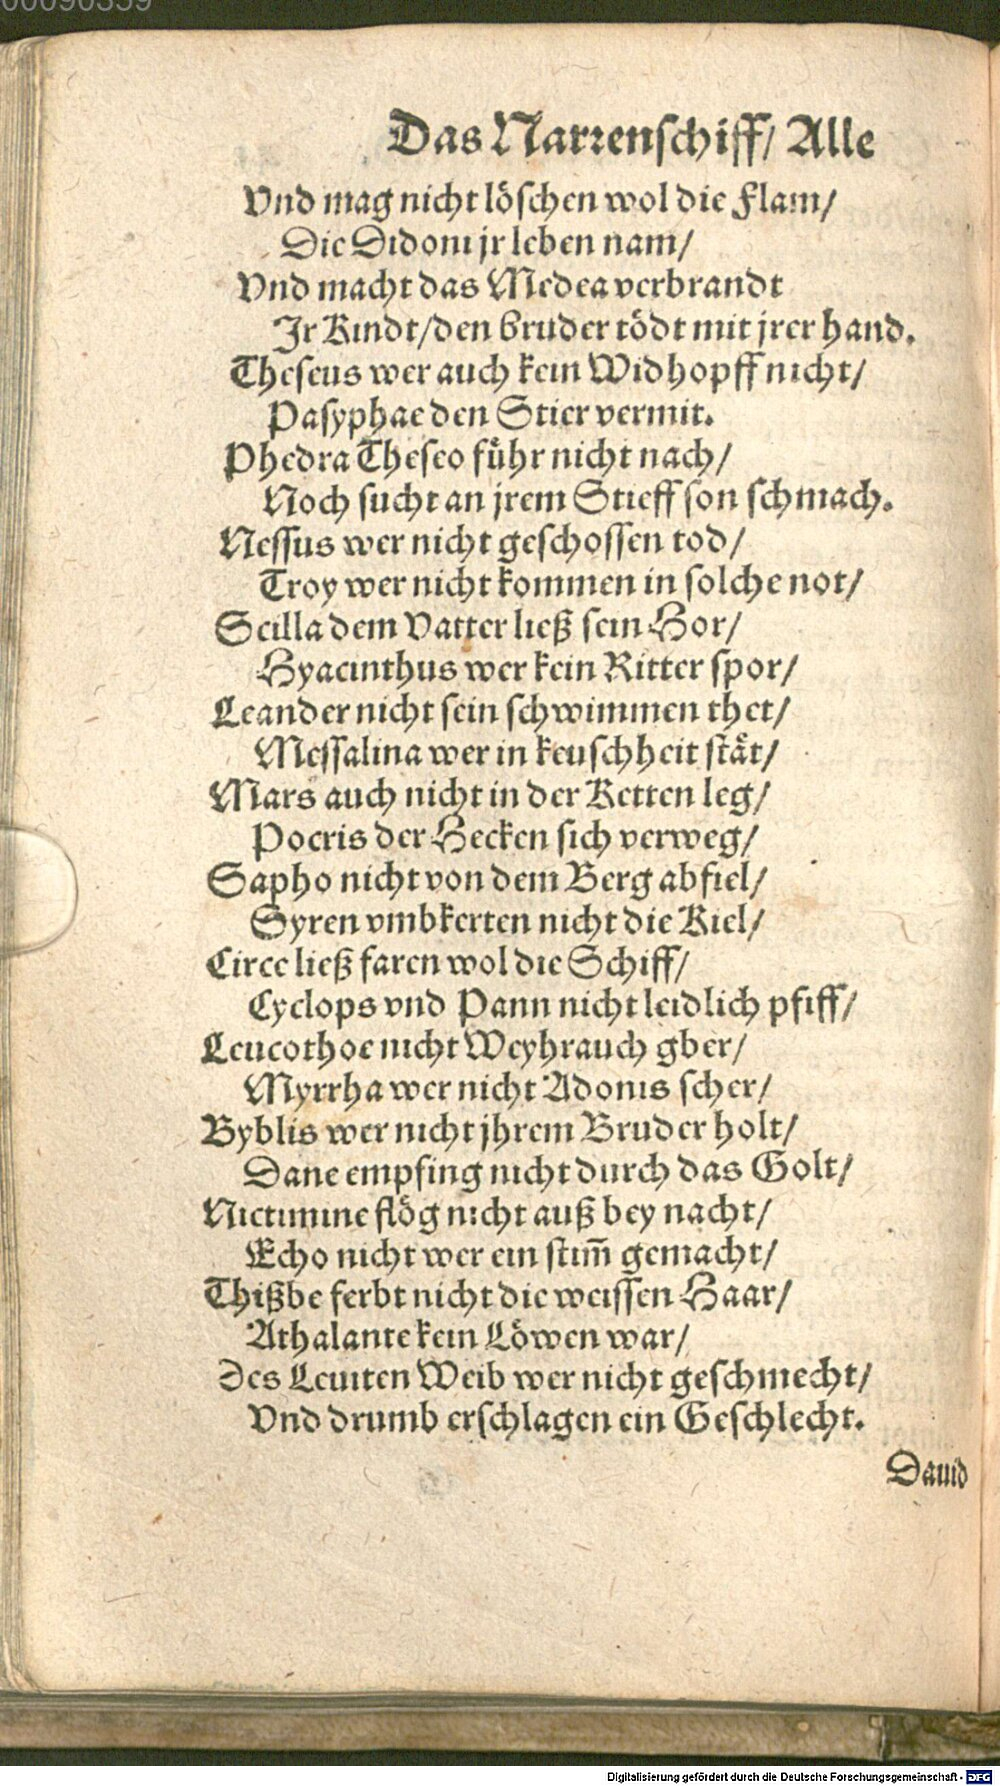 00090359
Das Narrenschiff/ Alle
Vnd mag nicht löschen wol die Flam/
Die Didoni jr leben nam/
Vnd macht das Medea verbrandt
Jr Kindt/den bruder tödt mit jrer hand.
Theseus wer auch kein Widhopff nicht/
Pasyphae den Stier vermit.
Phedra Theseo führ nicht nach/
Noch sucht an jrem Stieff son schmach.
Nessus wer nicht geschossen tod/
Troy wer nicht kommen in solche not/
Scilla dem Vatter ließ sein Hor/
Hyacinthus wer kein Ritter spor/
Leander nicht sein schwimmen thet/
Messalina wer in keuschheit stät/
Mars auch nicht in der Ketten leg/
Pocris der Hecken sich verweg/
Sapho nicht von dem Berg abfiel/
Syren vmbkerten nicht die Kiel/
Circe ließ faren wol die Schiff/
Cyclops vnd Pann nicht leidlich pfiff/
Leucothoe nicht Weyhrauch gber/
Myrrha wer nicht Adonis scher/
Byblis wer nicht jhrem Bruder holt/
Dane empfing nicht durch das Golt/
Nictimine flög nicht auß bey nacht/
Echo nicht wer ein stim̃ gemacht/
Thißbe ferbt nicht die weissen Haar/
Athalante kein Löwen war/
Des Leuiten Weib wer nicht geschmecht/
Vnd drumb erschlagen ein Geschlecht.
Dauid
Digitalisierung gefördert durch die Deutsche Forschungsgemeinschaft - DFG